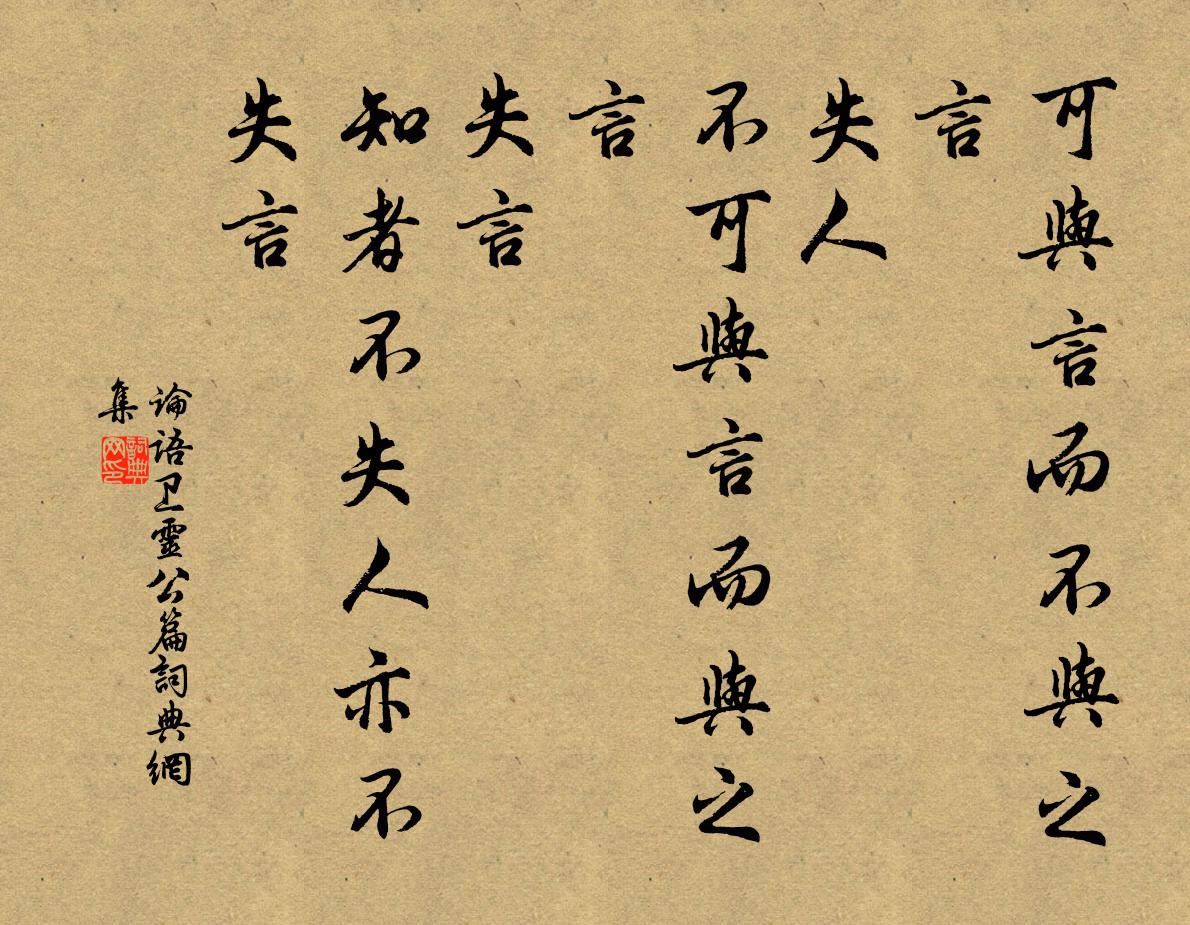 可與言而不與之
言
失人
不可與言而與之
言
失言
知者不失人亦不
失言
論語卫靈公篇詞典網
集
詞典
网印